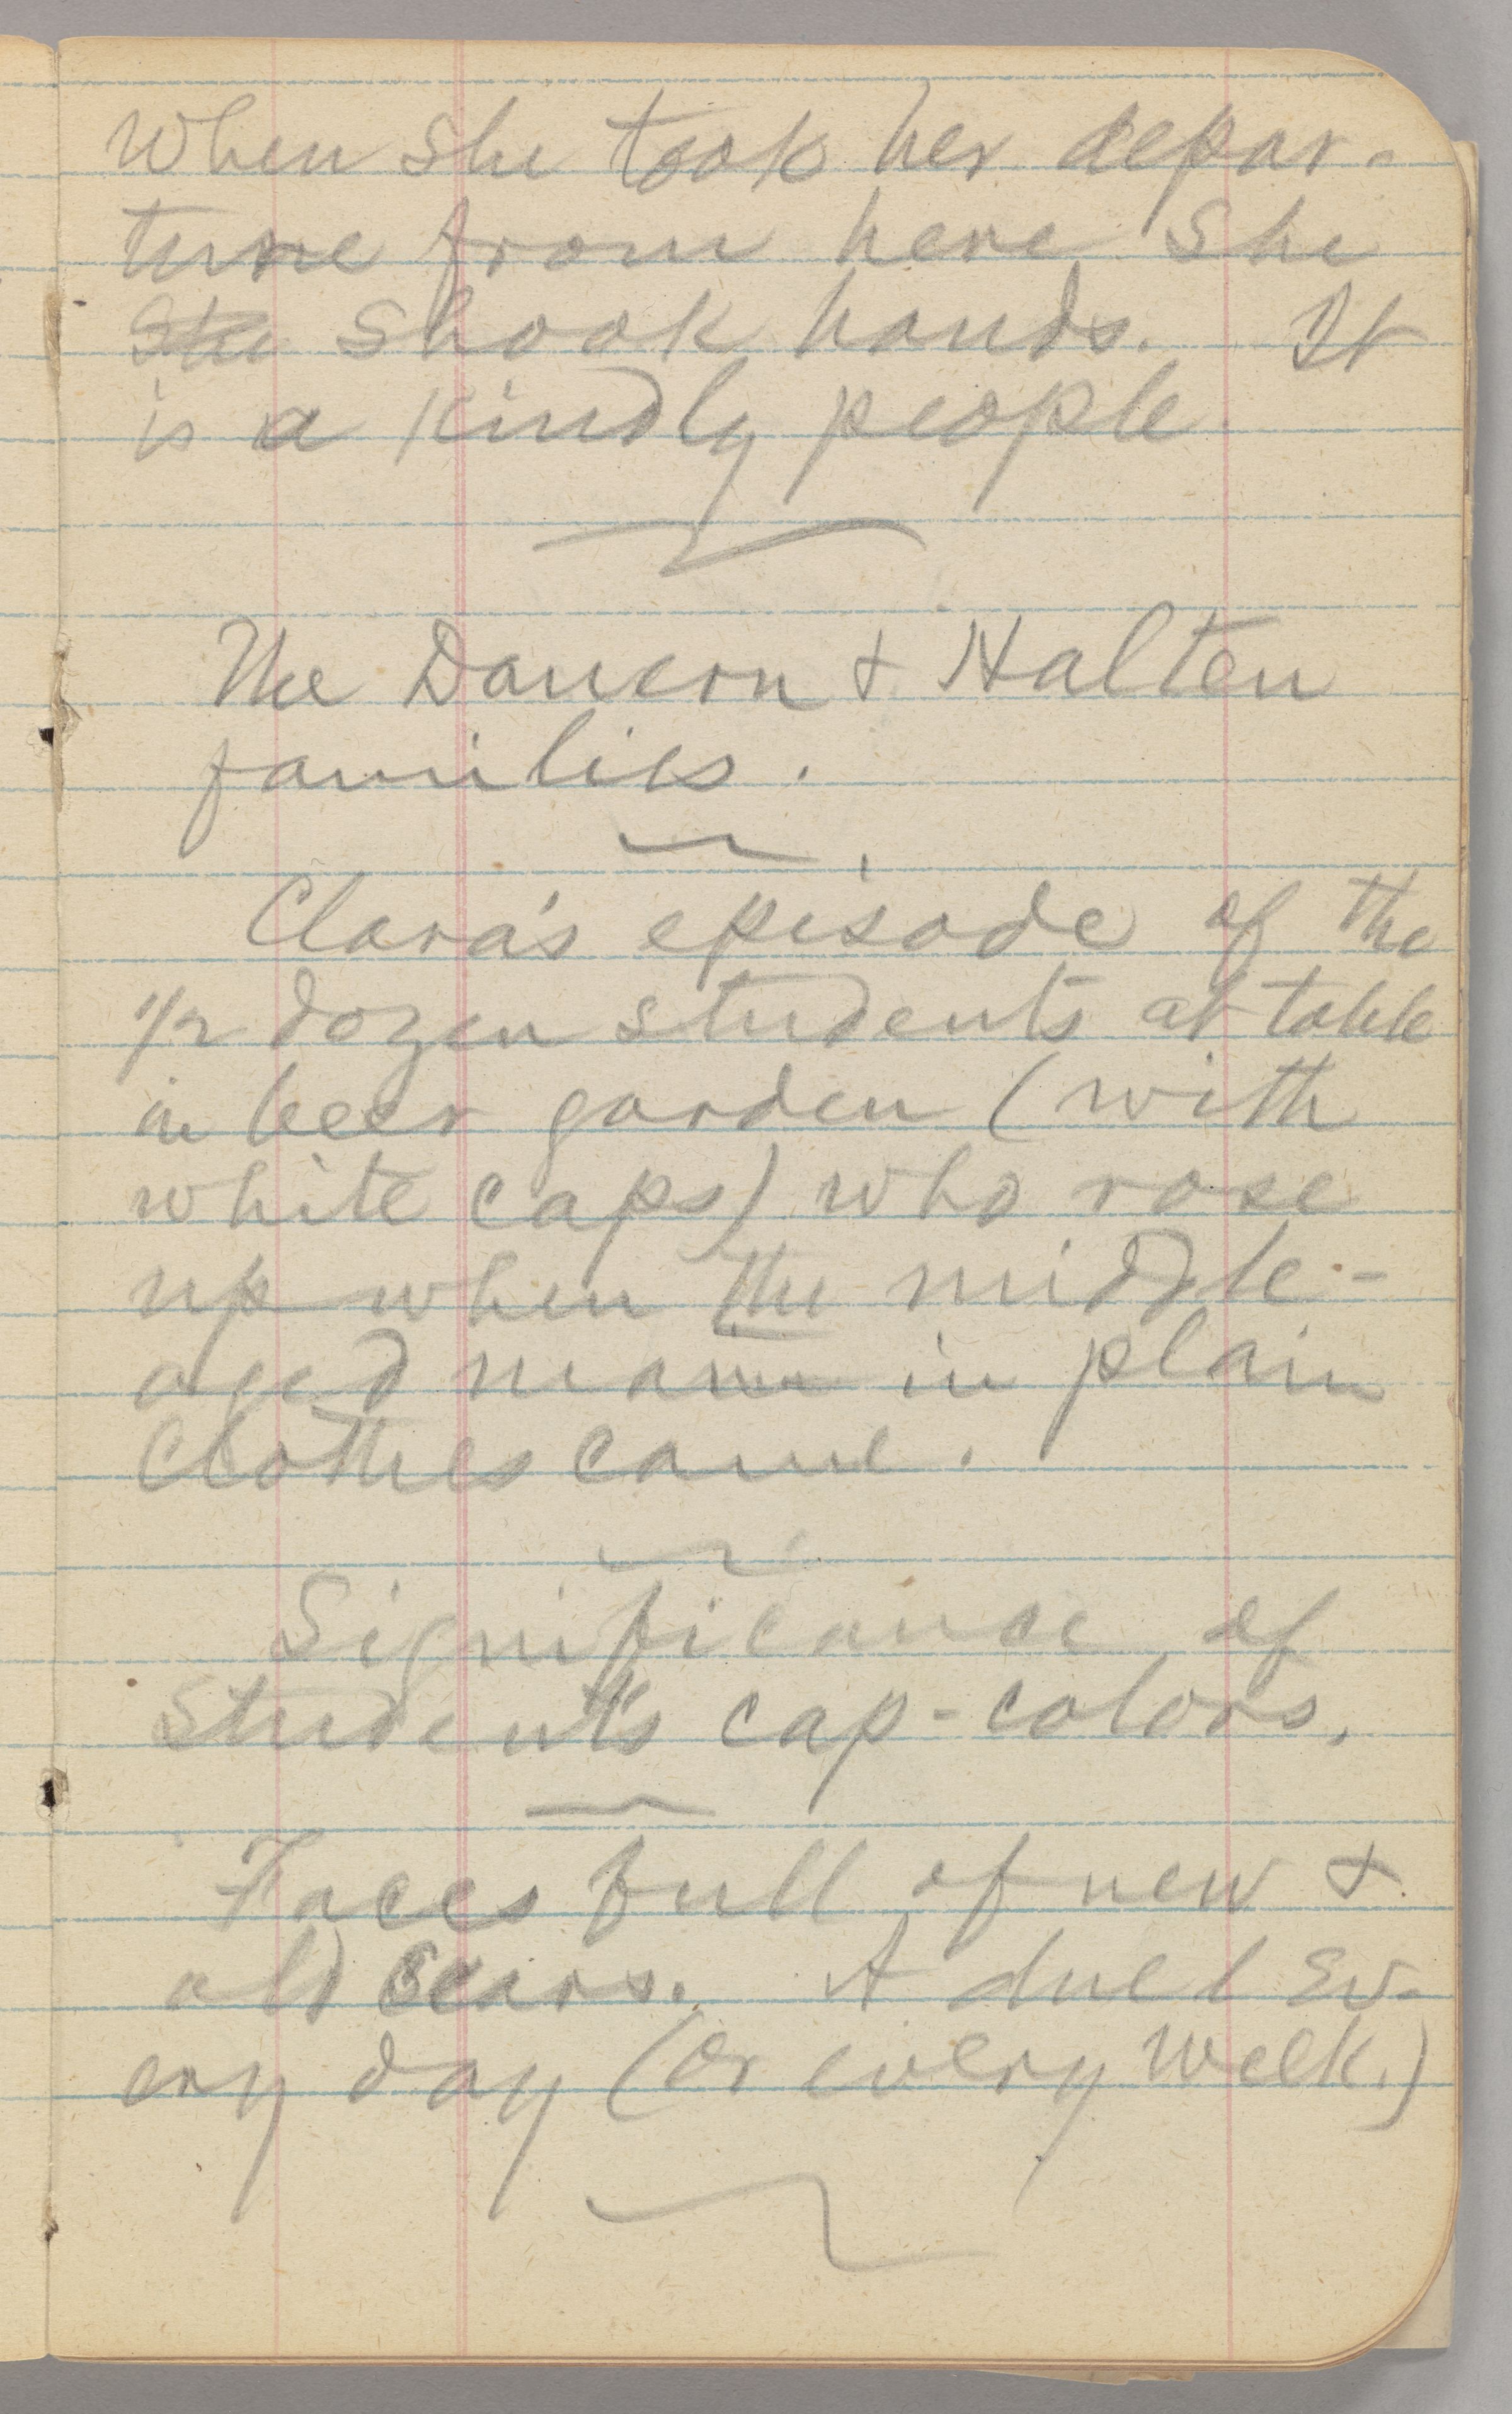 When she took her depar-
ture from here she
She shook hands. It
is a kindly people
The & Halten
families.
Clara's episode of the
1/2 dozen students at table
in beer garden (with
white caps) who rose
up when the middle-
aged man in plain
clothes came.
Significance of
students cap-colors.
Faces full of new &
old scars. A duel ev-
ery day (or every week.)